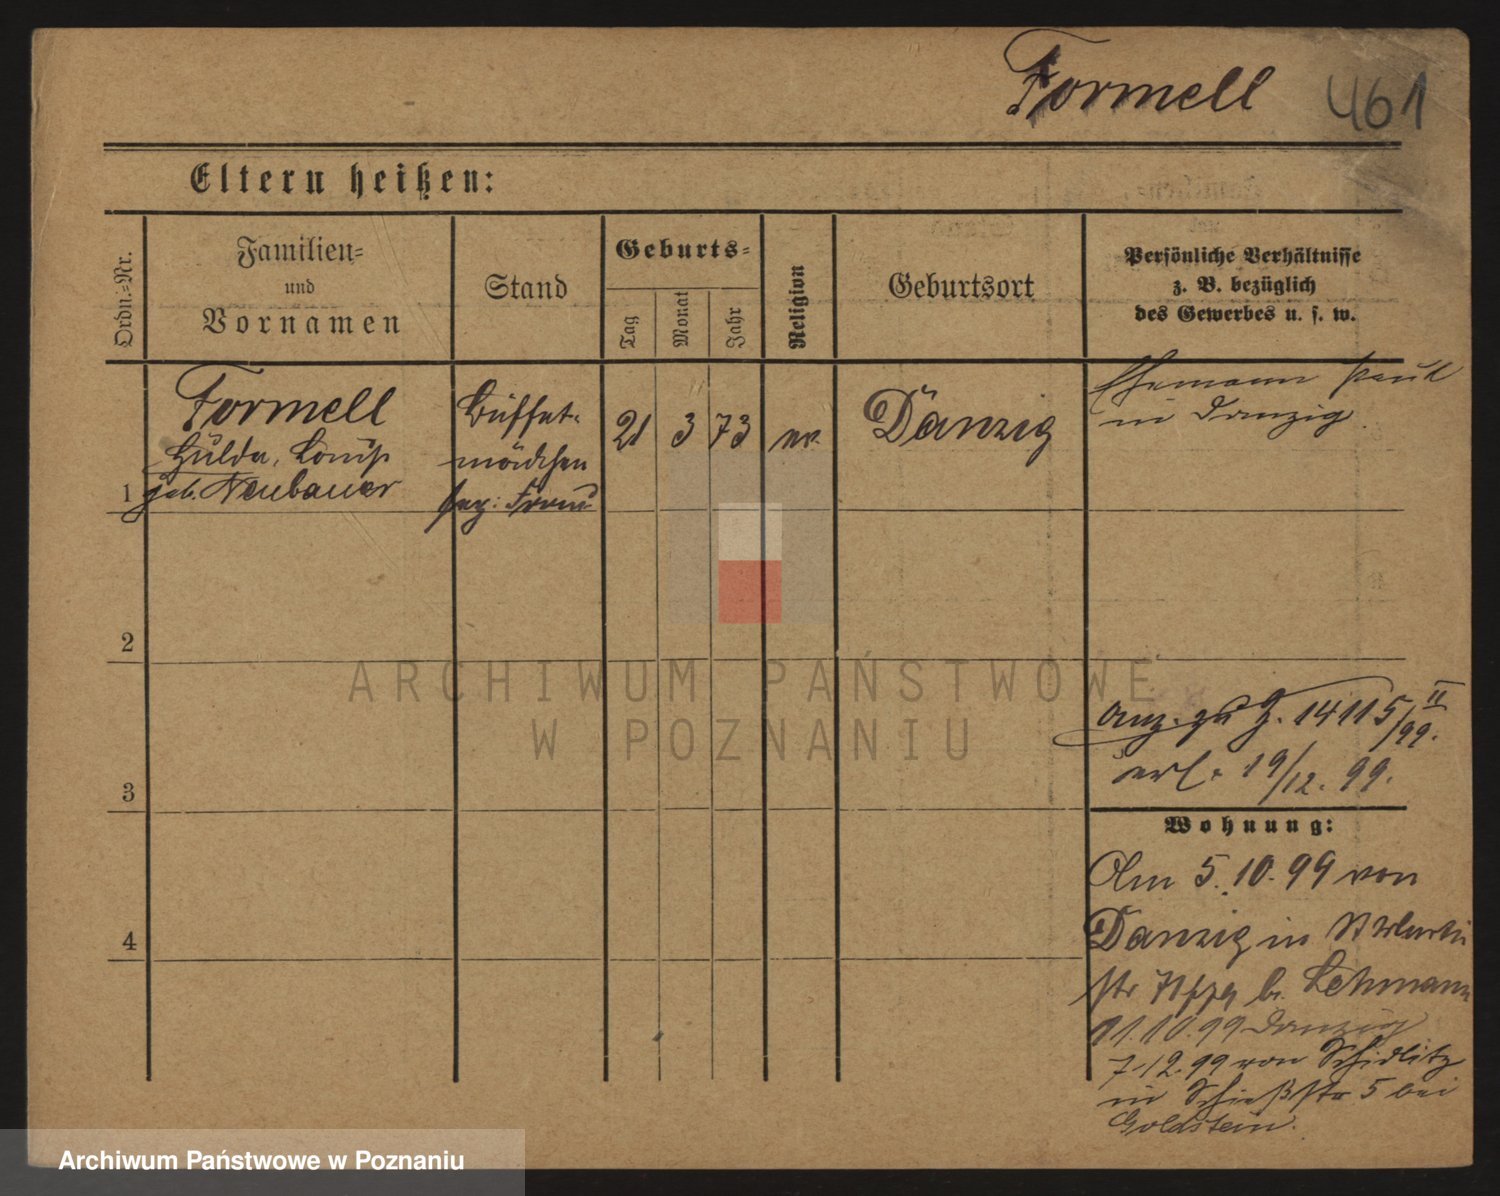 Formell 461
Eltern heißen:
Ordn.-Nr.
Familien-
und
Vornamen
Stand
Geburts-
Tag
Monat
Jahr
Religion
Geburtsort
Persönliche Verhältnisse
z. B. bezüglich
des Gewerbes u. s. w.
1
Formell
Hulda, Louise
geb. Neubauer
Buffet-
mädchen
Frau
21
3
73
ev.
Danzig
Ehemann Paul
in Danzig
2
3
Anz. zu J. 14115/99. II
erl. 19/12. 99.
Wohnung:
4
Am 5.10.99 von
Danzig in St Martin
str b. Lehmann
11.10.99 Danzig
7.12.99 von Schidlitz
in Schießstr 5 bei
Goldstein.
ARCHIWUM PAŃSTWOWE
W POZNANIU
Archiwum Państwowe w Poznaniu